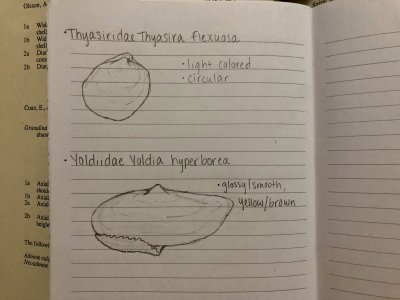 Olsson, A
1a Wid
shell
1b Wid
shell
2a Diar
2b Diar
Coan, E.,
Grandina
abuna
1a Axial
1b Axial
2a Axial
2b Axial
height
The follow
Admete cali
Neoadmete
• Thyasiridae Thyasira flexuosa
• light colored
• circular
• Yoldiidae Yoldia hyperborea
• glossy/smooth,
yellow/brown